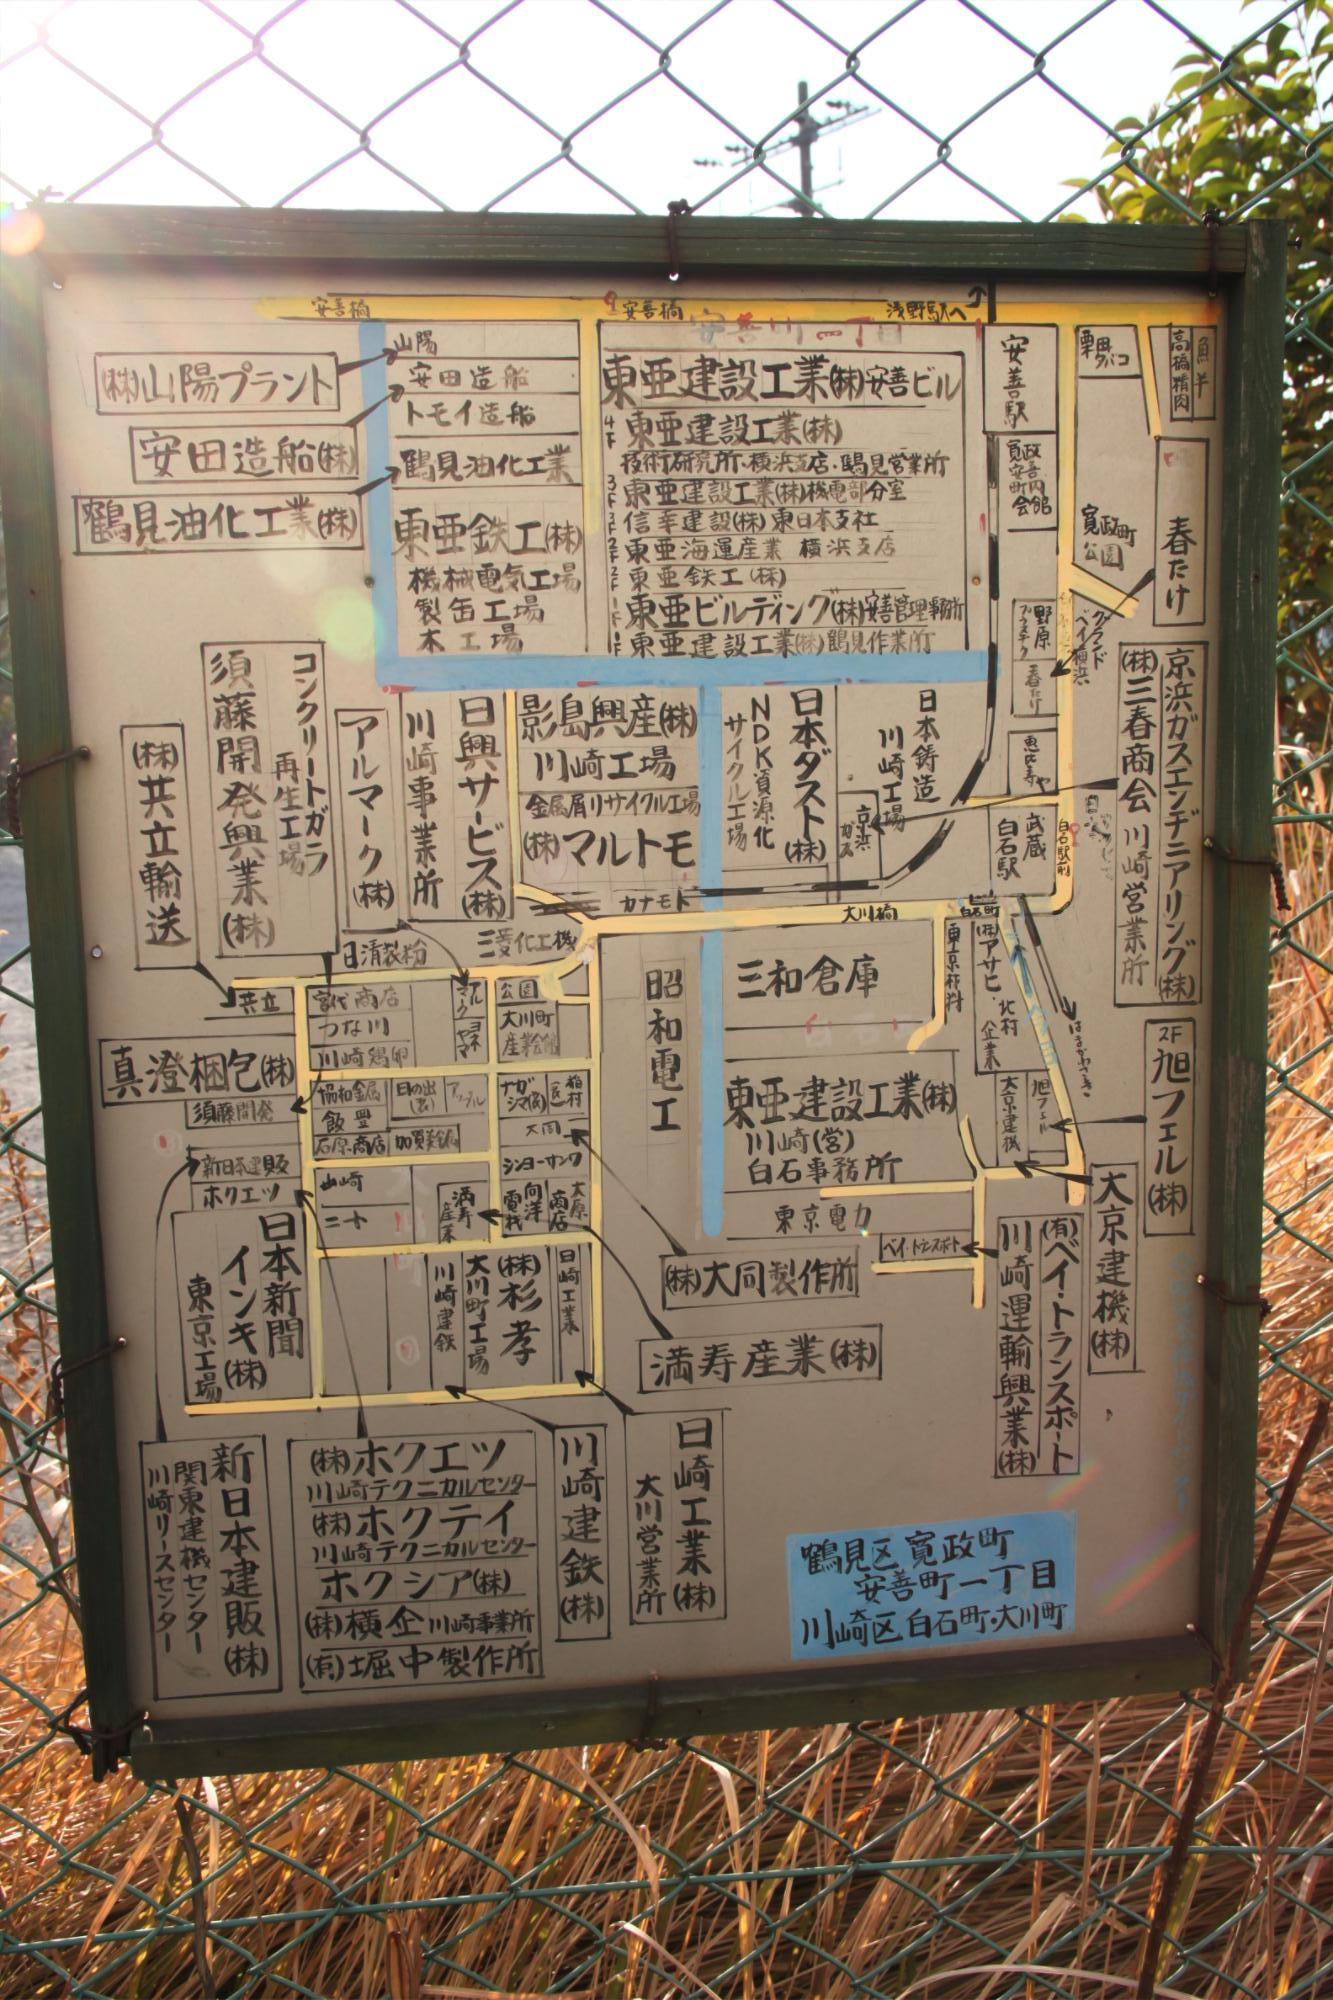 安善橋
安善橋
浅野駅へ
安善町一丁目
山陽
安田造船
トモイ造船
鶴見油化工業
(株)山陽プラント
安田造船(株)
鶴見油化工業(株)
東亜鉄工(株)
機械電気工場
製缶工場
木工場
東亜建設工業(株)安善ビル
4F 東亜建設工業(株)
技術研究所・横浜支店・鶴見営業所
3F 東亜建設工業(株)機電部分室
信幸建設(株)東日本支社
東亜海運産業 横浜支店
東亜鉄工(株)
東亜ビルディング(株)安善管理事務所
東亜建設工業(株)鶴見作業所
安善駅
栗田タバコ
高橋精肉
魚半
寛政町安善町内会館
寛政町公園
春たけ
野原
グランドベイ横浜
春たけ
恵比寿や
京浜ガスエンヂニアリング(株)
(株)三春商会 川崎営業所
コンクリートガラ
再生工場
須藤開発興業(株)
(株)共立輸送
アルマーク(株)
日興サービス(株)
川崎事業所
影島興産(株)
川崎工場
金属屑リサイクル工場
(株)マルトモ
カナモト
日本ダスト(株)
NDK資源化
サイクル工場
日本鋳造
川崎工場
京浜ガス
武蔵白石駅
白石駅前
大川橋
白石町
三菱化工機
日清製粉
共立
宮代商店
つな川
川崎鶏卵
公園
大川町
産業会館
昭和電工
三和倉庫
白石町
東京材料
(株)アサヒ・北村企業
はまかわさき
2F 旭フェル(株)
真澄梱包(株)
須藤開発
協和金属
飯豊
日の出
石原商店
加賀美金属
ナガシマ(株)
大同
シンヨーサンワ
新日本建販
ホクエツ
山崎
二十
満寿産業
向洋電機
大原商店
東亜建設工業(株)
川崎(営)
白石事務所
東京電力
ベイ・トランスポート
大京建機
旭フェル
大京建機(株)
(有)ベイ・トランスポート
川崎運輸興業(株)
日本新聞
インキ(株)
東京工場
川崎建鉄
大川町工場
(株)杉孝
日崎工業
(株)大同製作所
満寿産業(株)
新日本建販(株)
関東建機センター
川崎リースセンター
(株)ホクエツ
川崎テクニカルセンター
(株)ホクテイ
川崎テクニカルセンター
ホクシア(株)
(株)横企 川崎事業所
(有)堀中製作所
川崎建鉄(株)
日崎工業(株)
大川営業所
鶴見区寛政町
安善町一丁目
川崎区白石町・大川町